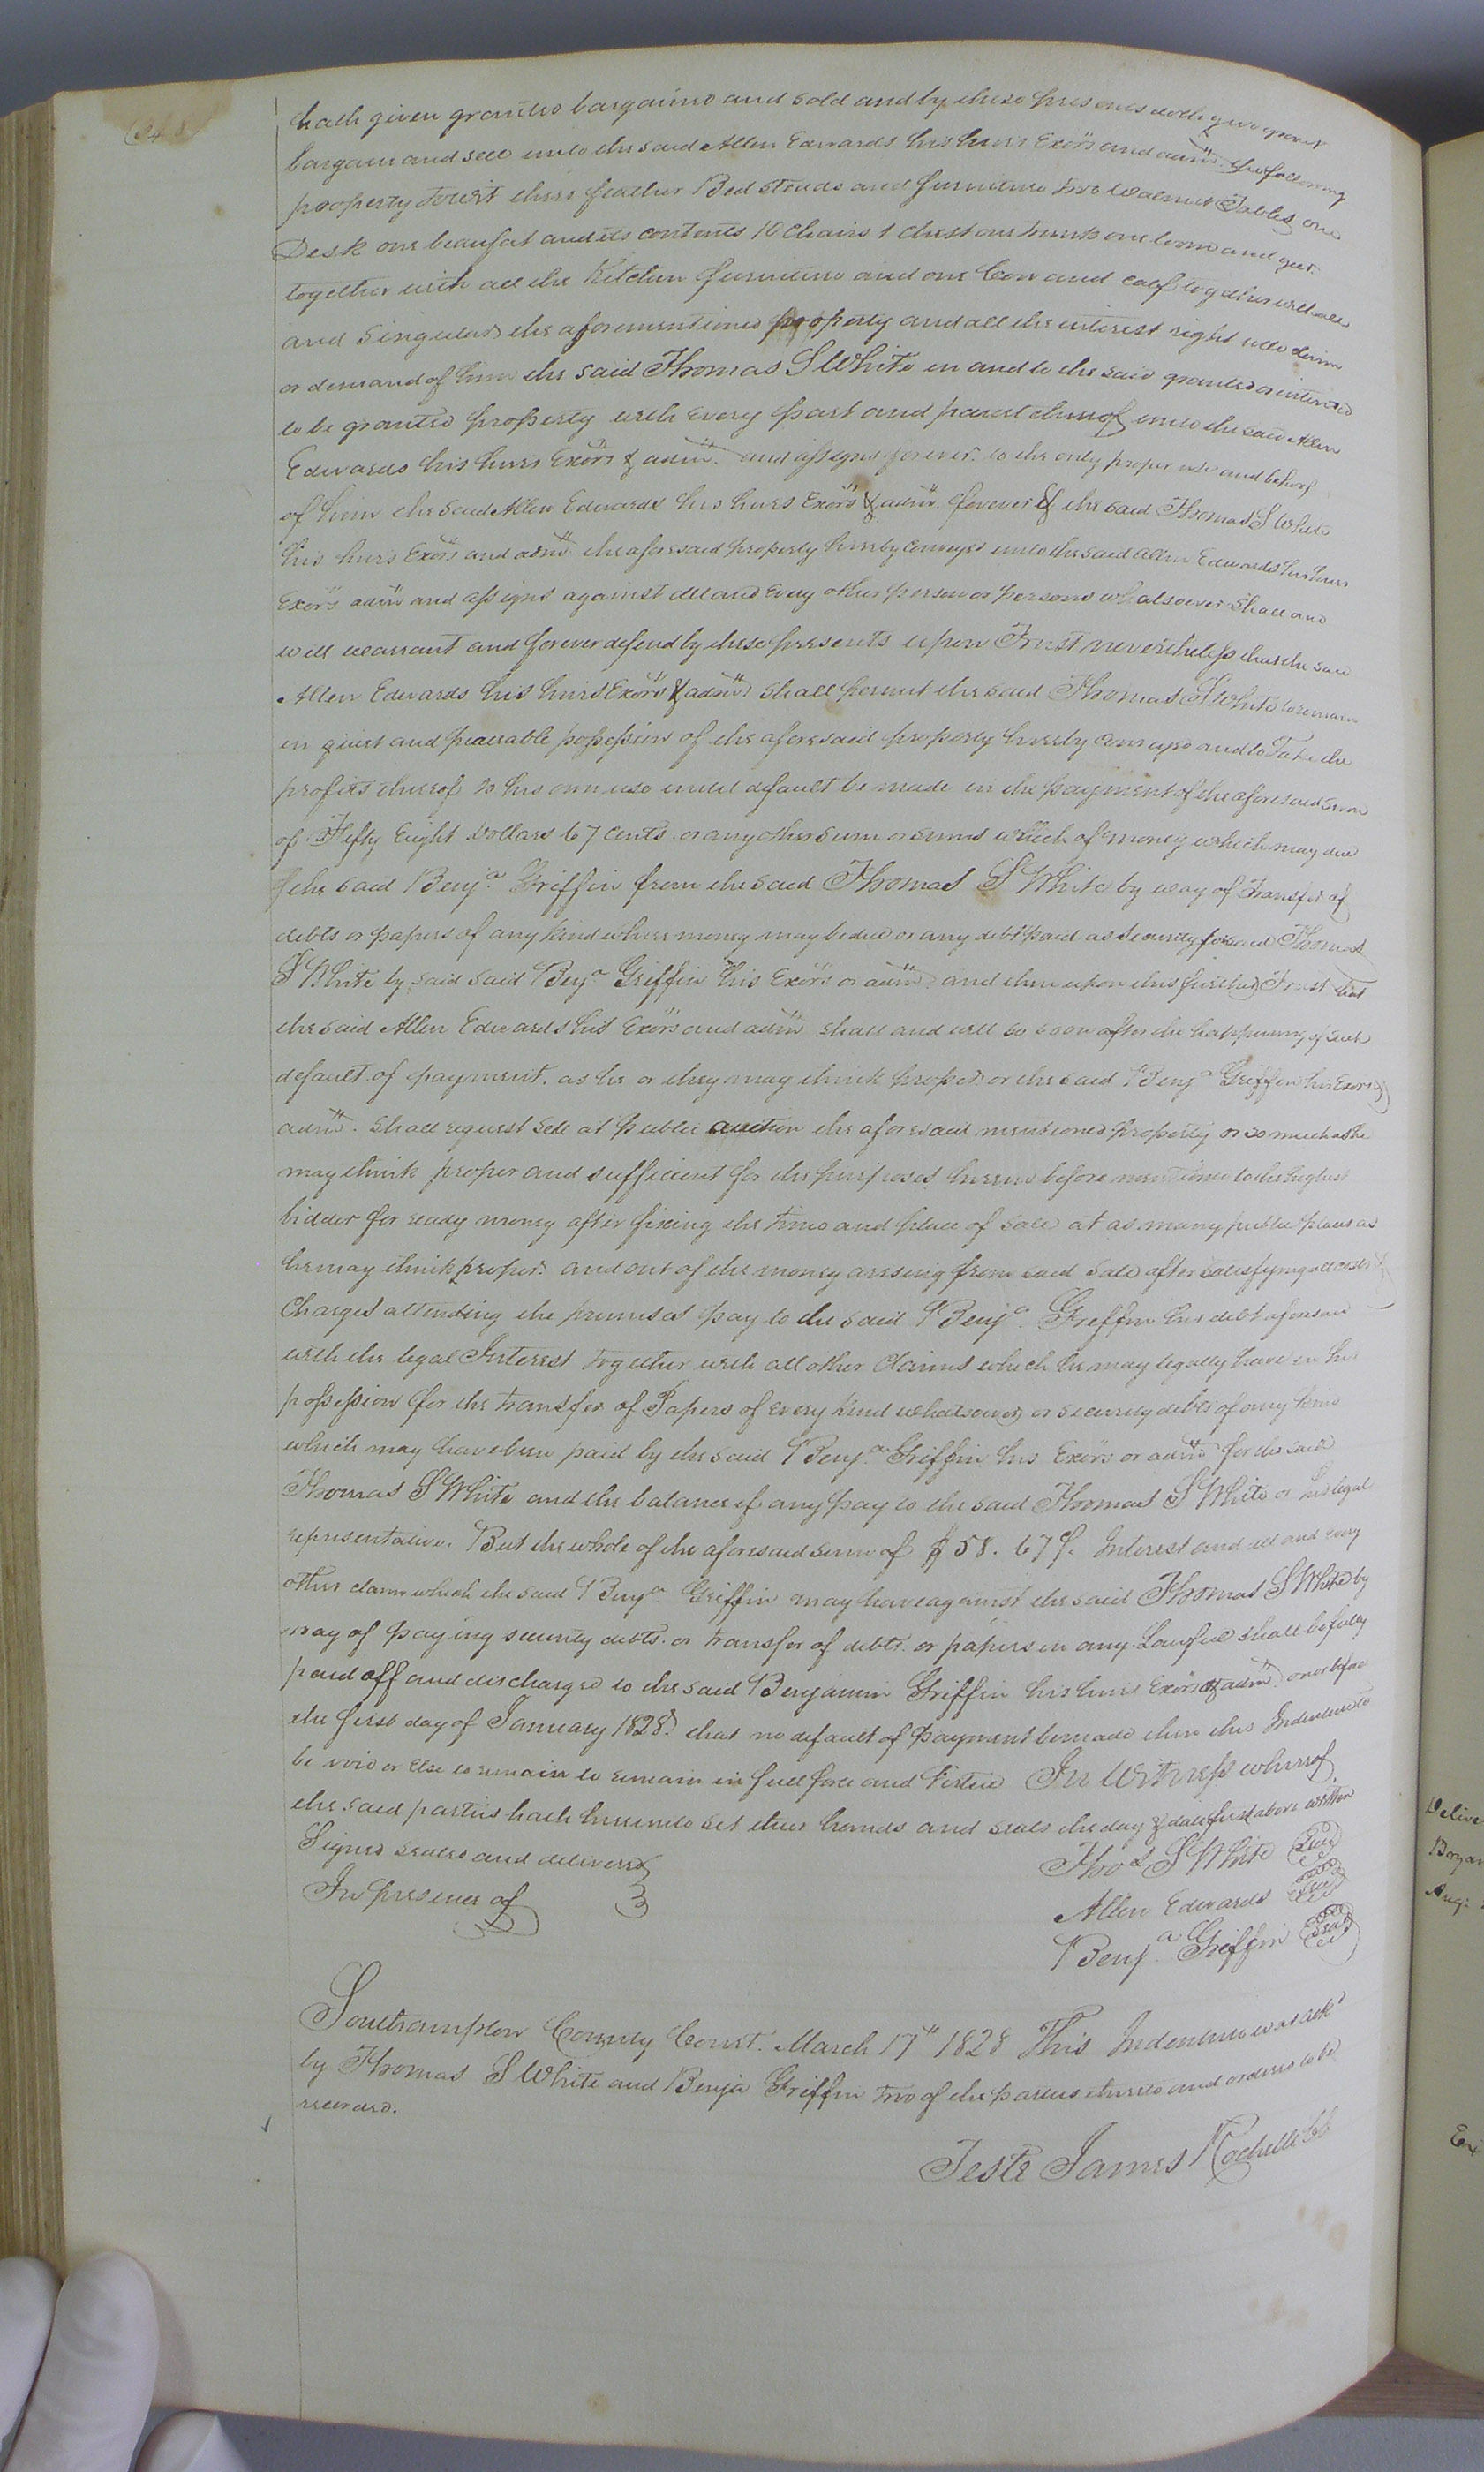 hath given granted bargained and sold and by these presents doth give grant
bargain and sell unto the said Allen Edwards his heirs Exors and adms the following
property towit three feather Bed steads and furniture two Walnut Tables one
Desk one beaufat and its contents 10 Chairs 1 chest one trunk one loom and geer
together with all the Kitchen furniture and one Cow and calf together with all
and Singular the aforementioned property and all the interest right title claim
or demand of him the said Thomas S White in and to the said granted or intended
to be granted property with Every part and parcel thereof unto the said Allen
Edwards his heirs Exors & adms. and assigns forever. to the only proper use and behoof
of him the said Allen Edwards his heirs Exors & adms. forever & the said Thomas S White
his heirs Exors and adms the aforesaid property hereby conveyed unto the said Allen Edwards his heirs
Exors adms and assigns against all and Every other person or persons whatsoever Shall and
will warrant and forever defend by these presents upon Trust nevertheless that the said
Allen Edwards his heirs Exors & adms shall permit the said Thomas S White to remain
in quiet and peaceable possession of the aforesaid property hereby conveyed and to Take the
profits thereof to his own use until default be made in the payment of the aforesaid sum
of Fifty Eight Dollars 67 cents or any other sum or sums which of money which may due
the said Benja Griffin from the said Thomas S White by way of Transfer of
debts or papers of any kind where money may be due or any debt paid as security for said Thomas
S White by said said Benja Griffin his Exors or adms and then upon this further Trust that
the said Allen Edwards his Exors and adms shall and will so soon after the happening of such
default of payment. as he or they may think proper or the said Benja Griffin his Exors &
adms. shall request sell at public auction the aforesaid mentioned property or so much as he
may think proper and sufficient for the purposes herein before mentioned to the highest
bidder for ready money after fixing the time and place of sale at as many public places as
he may think proper. and out of the money arising from said sale after satisfying all costs &
Charges attending the premises pay to the said Benja. Griffin his debt aforesaid
with the legal Interest together with all other Claims which he may legally have in his
possession for the transfer of Papers of every kind whatsoever or security debts of any kind
which may have been paid by the said Benja Griffin his Exors or adms for the said
Thomas S White and the balance if any pay to the said Thomas S White or his legal
representative. But the whole of the aforesaid sum of $58.67 ¢. Interest and all and every
other claim which the said Benja Griffin may have against the said Thomas S White by
way of paying security debts. or transfer of debts. or papers in any Lawful shall be fully
paid off and discharged to the said Benjamin Griffin his heirs Exors & adms on or before
the first day of January 1828. that no default of payment be made then this Indenture to
be void or Else to remain to remain in full force and Virtue In Witness whereof
the said parties hath hereunto set their hands and seals the day & date first above written
Signed sealed and delivered
In presence of
Thos S White Seal
Allen Edwards Seal
Benja Griffin Seal
Southampton County Court. March 17th 1828 This Indenture was ackd
by Thomas S White and Benja Griffin two of the parties thereto and ordered to be
record.
Teste James Rochelle CC
Delive
Augt
Ex